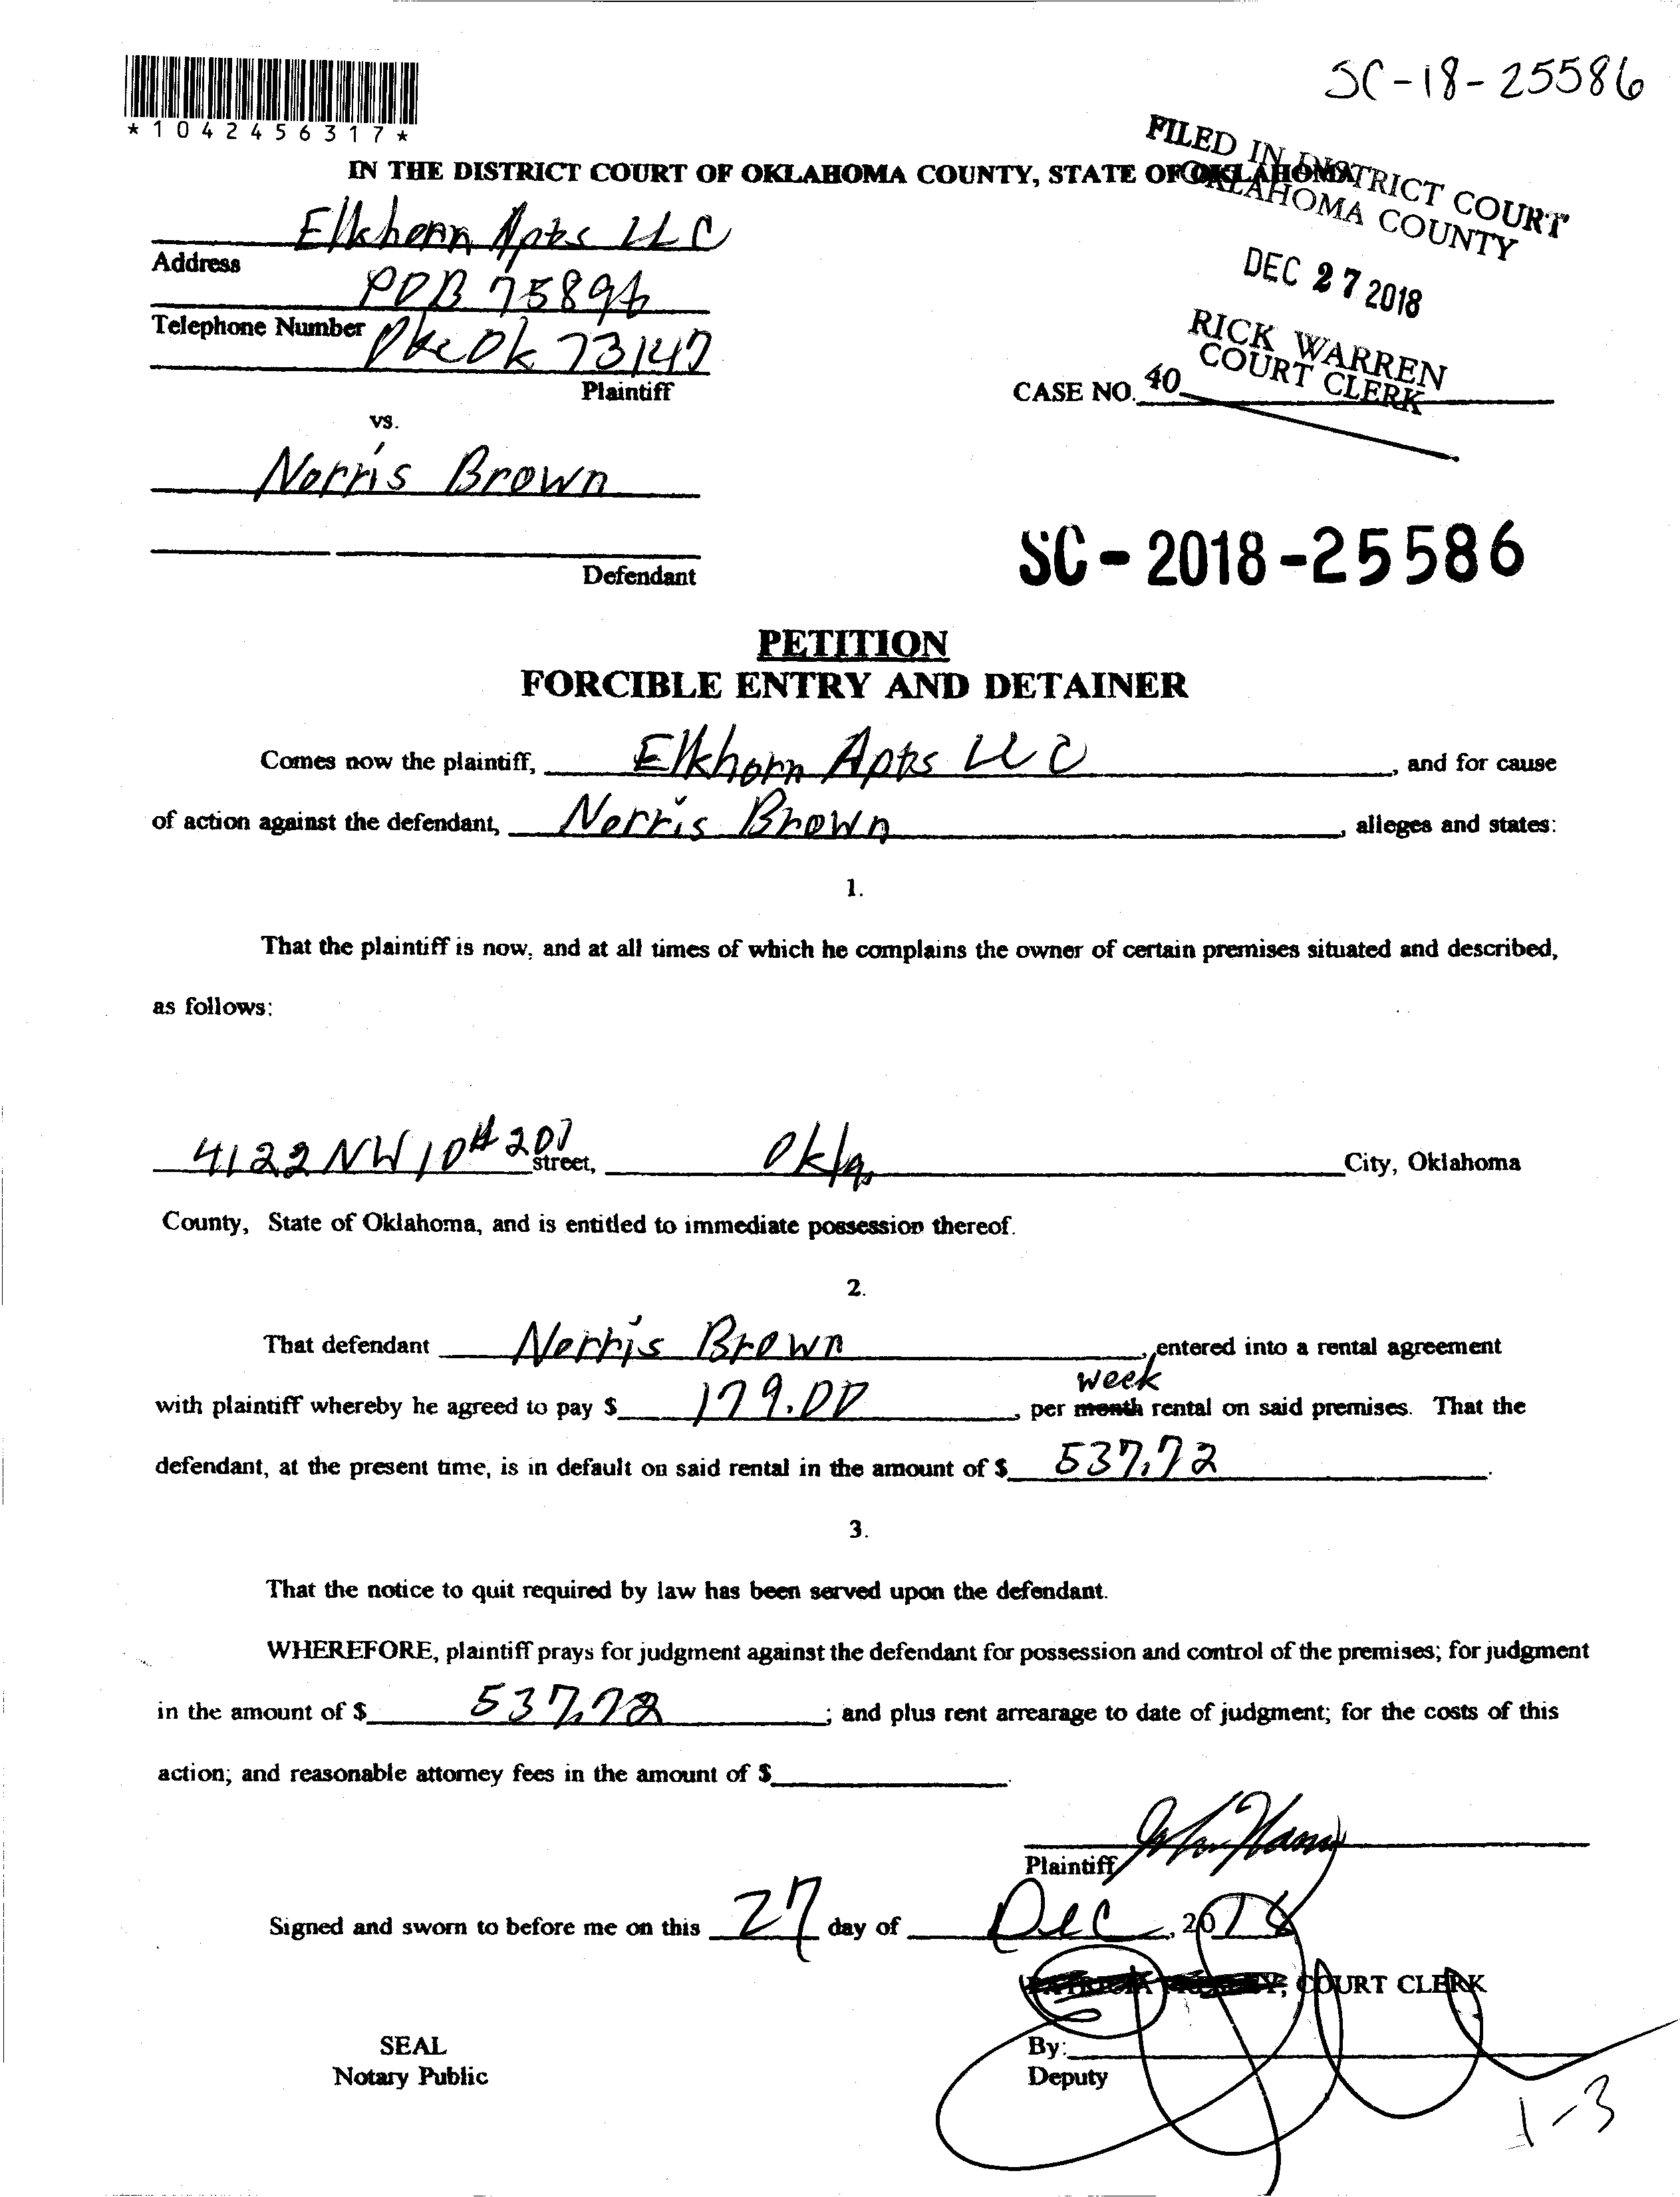 SC-18-25586
*1042456317*
FILED IN DISTRICT COURT
OKLAHOMA COUNTY
IN THE DISTRICT COURT OF OKLAHOMA COUNTY, STATE OF OKLAHOMA
DEC 27 2018
RICK WARREN
COURT CLERK
Elkhorn Apts LLC
Address
POB 75896
Telephone Number
Okc Ok 73147
Plaintiff
CASE NO. 40
vs.
Norris Brown
Defendant
SC-2018-25586
PETITION
FORCIBLE ENTRY AND DETAINER
Comes now the plaintiff, Elkhorn Apts LLC, and for cause
of action against the defendant, Norris Brown, alleges and states:
1.
That the plaintiff is now, and at all times of which he complains the owner of certain premises situated and described,
as follows:
4122 NW 10 # 207 street, Okla, City, Oklahoma
County, State of Oklahoma, and is entitled to immediate possession thereof.
2.
That defendant Norris Brown, entered into a rental agreement
week
with plaintiff whereby he agreed to pay $ 179.00, per month rental on said premises. That the
defendant, at the present time, is in default on said rental in the amount of $ 537.72.
3.
That the notice to quit required by law has been served upon the defendant.
WHEREFORE, plaintiff prays for judgment against the defendant for possession and control of the premises; for judgment
in the amount of $ 537.72; and plus rent arrearage to date of judgment; for the costs of this
action; and reasonable attorney fees in the amount of $.
Plaintiff
Signed and sworn to before me on this 27 day of Dec, 2018
COURT CLERK
SEAL
By:
Notary Public
Deputy
1-3